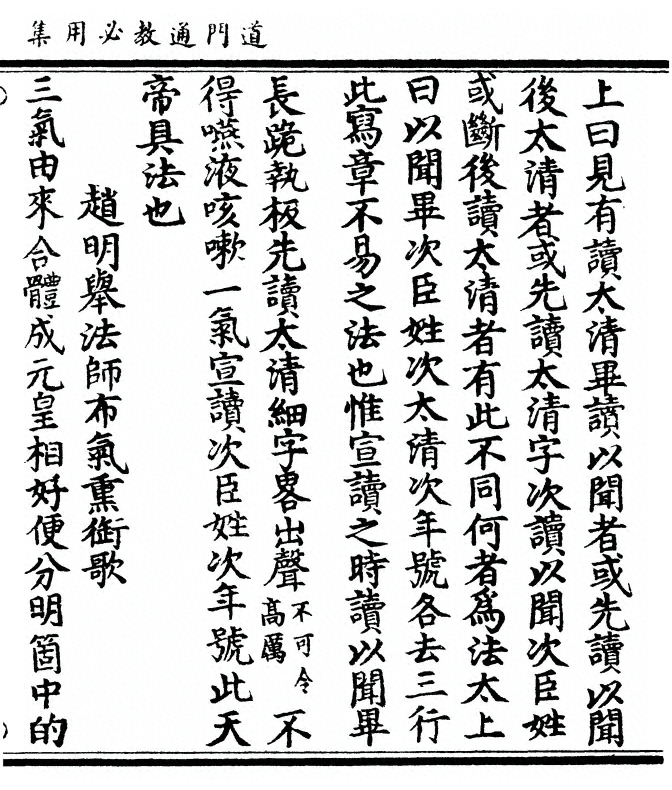 道門通教必用集
上曰見有讀太清畢讀以聞者或先讀以聞
後太清者或先讀太清字次讀以聞次臣姓
或斷後讀太清者有此不同何者爲法太上
曰以聞畢次臣姓次太清次年號各去三行
此寫章不易之法也惟宣讀之時讀以聞畢
長跪執板先讀太清細字畧出聲不可令高厲不
得嚥液咳嗽一氣宣讀次臣姓次年號此天
帝具法也
趙明舉法師布氣熏銜歌
三氣由來合體成元皇相好便分明箇中的